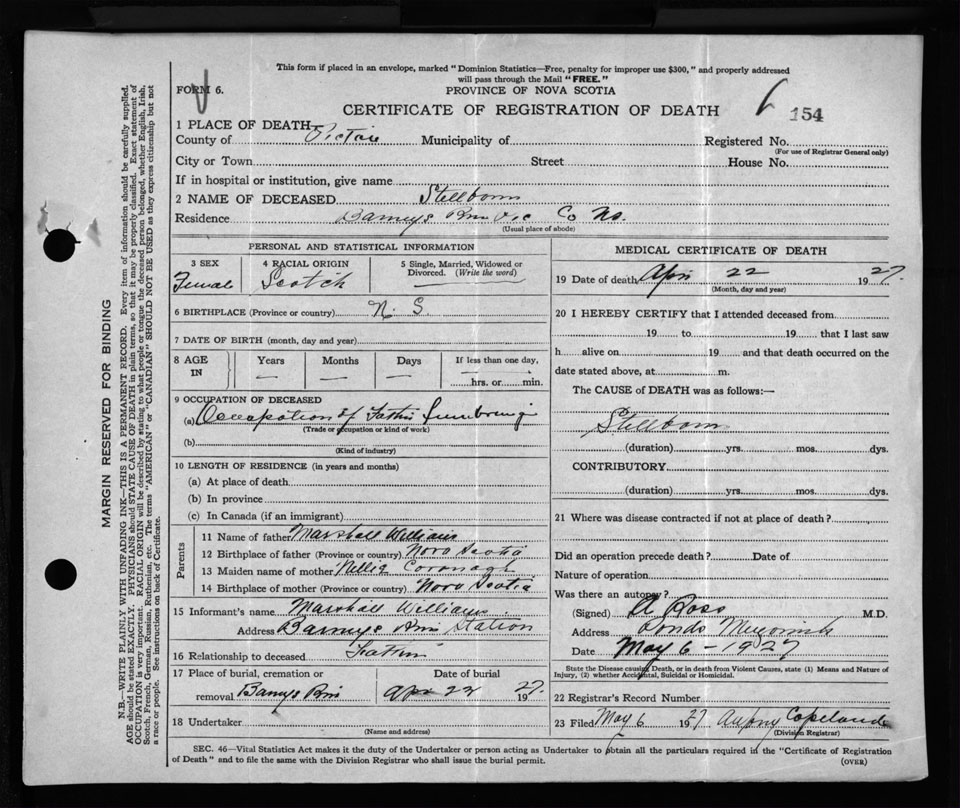 This form if placed in an envelope, marked "Dominion Statistics—Free, penalty for improper use $300," and properly addressed
will pass through the Mail "FREE."
FORM 6.
PROVINCE OF NOVA SCOTIA
CERTIFICATE OF REGISTRATION OF DEATH
154
1 PLACE OF DEATH
County of Pictou Municipality of Registered No.
(For use of Registrar General only)
City or Town Street House No.
If in hospital or institution, give name
2 NAME OF DECEASED Stillborn
Residence Barneys Co
(Usual place of abode)
PERSONAL AND STATISTICAL INFORMATION
3 SEX 4 RACIAL ORIGIN 5 Single, Married, Widowed or
Divorced. (Write the word)
Female Scotch —
6 BIRTHPLACE (Province or country) N. S
7 DATE OF BIRTH (month, day and year)
8 AGE IN Years Months Days If less than one day,
— — — hrs. or min.
9 OCCUPATION OF DECEASED
(a) Occupation of Father
(Trade or occupation or kind of work)
(b)
(Kind of industry)
10 LENGTH OF RESIDENCE (in years and months)
(a) At place of death
(b) In province
(c) In Canada (if an immigrant)
Parents
11 Name of father Marshall Williams
12 Birthplace of father (Province or country) Nova Scotia
13 Maiden name of mother Nellie Cavanagh
14 Birthplace of mother (Province or country) Nova Scotia
15 Informant's name Marshall Williams
Address Barneys Station
16 Relationship to deceased Father
17 Place of burial, cremation or Date of burial
removal Barneys Apr 22 1927.
18 Undertaker
(Name and address)
MEDICAL CERTIFICATE OF DEATH
19 Date of death Apr 22 1927.
(Month, day and year)
20 I HEREBY CERTIFY that I attended deceased from
19 to 19 that I last saw
h alive on 19 and that death occurred on the
date stated above, at m.
The CAUSE of DEATH was as follows:—
Stillborn
(duration) yrs. mos. dys.
CONTRIBUTORY
(duration) yrs. mos. dys.
21 Where was disease contracted if not at place of death?
Did an operation precede death? Date of
Nature of operation
Was there an autopsy?
(Signed) A Ross M.D.
Address
Date May 6 - 1927
State the Disease causing Death, or in death from Violent Causes, state (1) Means and Nature of
Injury, (2) whether Accidental, Suicidal or Homicidal.
22 Registrar's Record Number
23 Filed May 6 1927 Copeland
(Division Registrar)
SEC. 46—Vital Statistics Act makes it the duty of the Undertaker or person acting as Undertaker to obtain all the particulars required in the "Certificate of Registration
of Death" and to file the same with the Division Registrar who shall issue the burial permit.
(OVER)
MARGIN RESERVED FOR BINDING
N.B.—WRITE PLAINLY WITH UNFADING INK—THIS IS A PERMANENT RECORD. Every item of information should be carefully supplied.
AGE should be stated EXACTLY. PHYSICIANS should STATE CAUSE OF DEATH in plain terms, so that it may be properly classified. Exact statement of
OCCUPATION is very important. RACIAL ORIGIN will be described by stating to what people or tongue the deceased person belonged, whether English, Irish,
Scotch, French, German, Russian, Ruthenian, etc. The terms "AMERICAN" or "CANADIAN" SHOULD NOT BE USED as they express citizenship but not
a race or people. See instructions on back of Certificate.